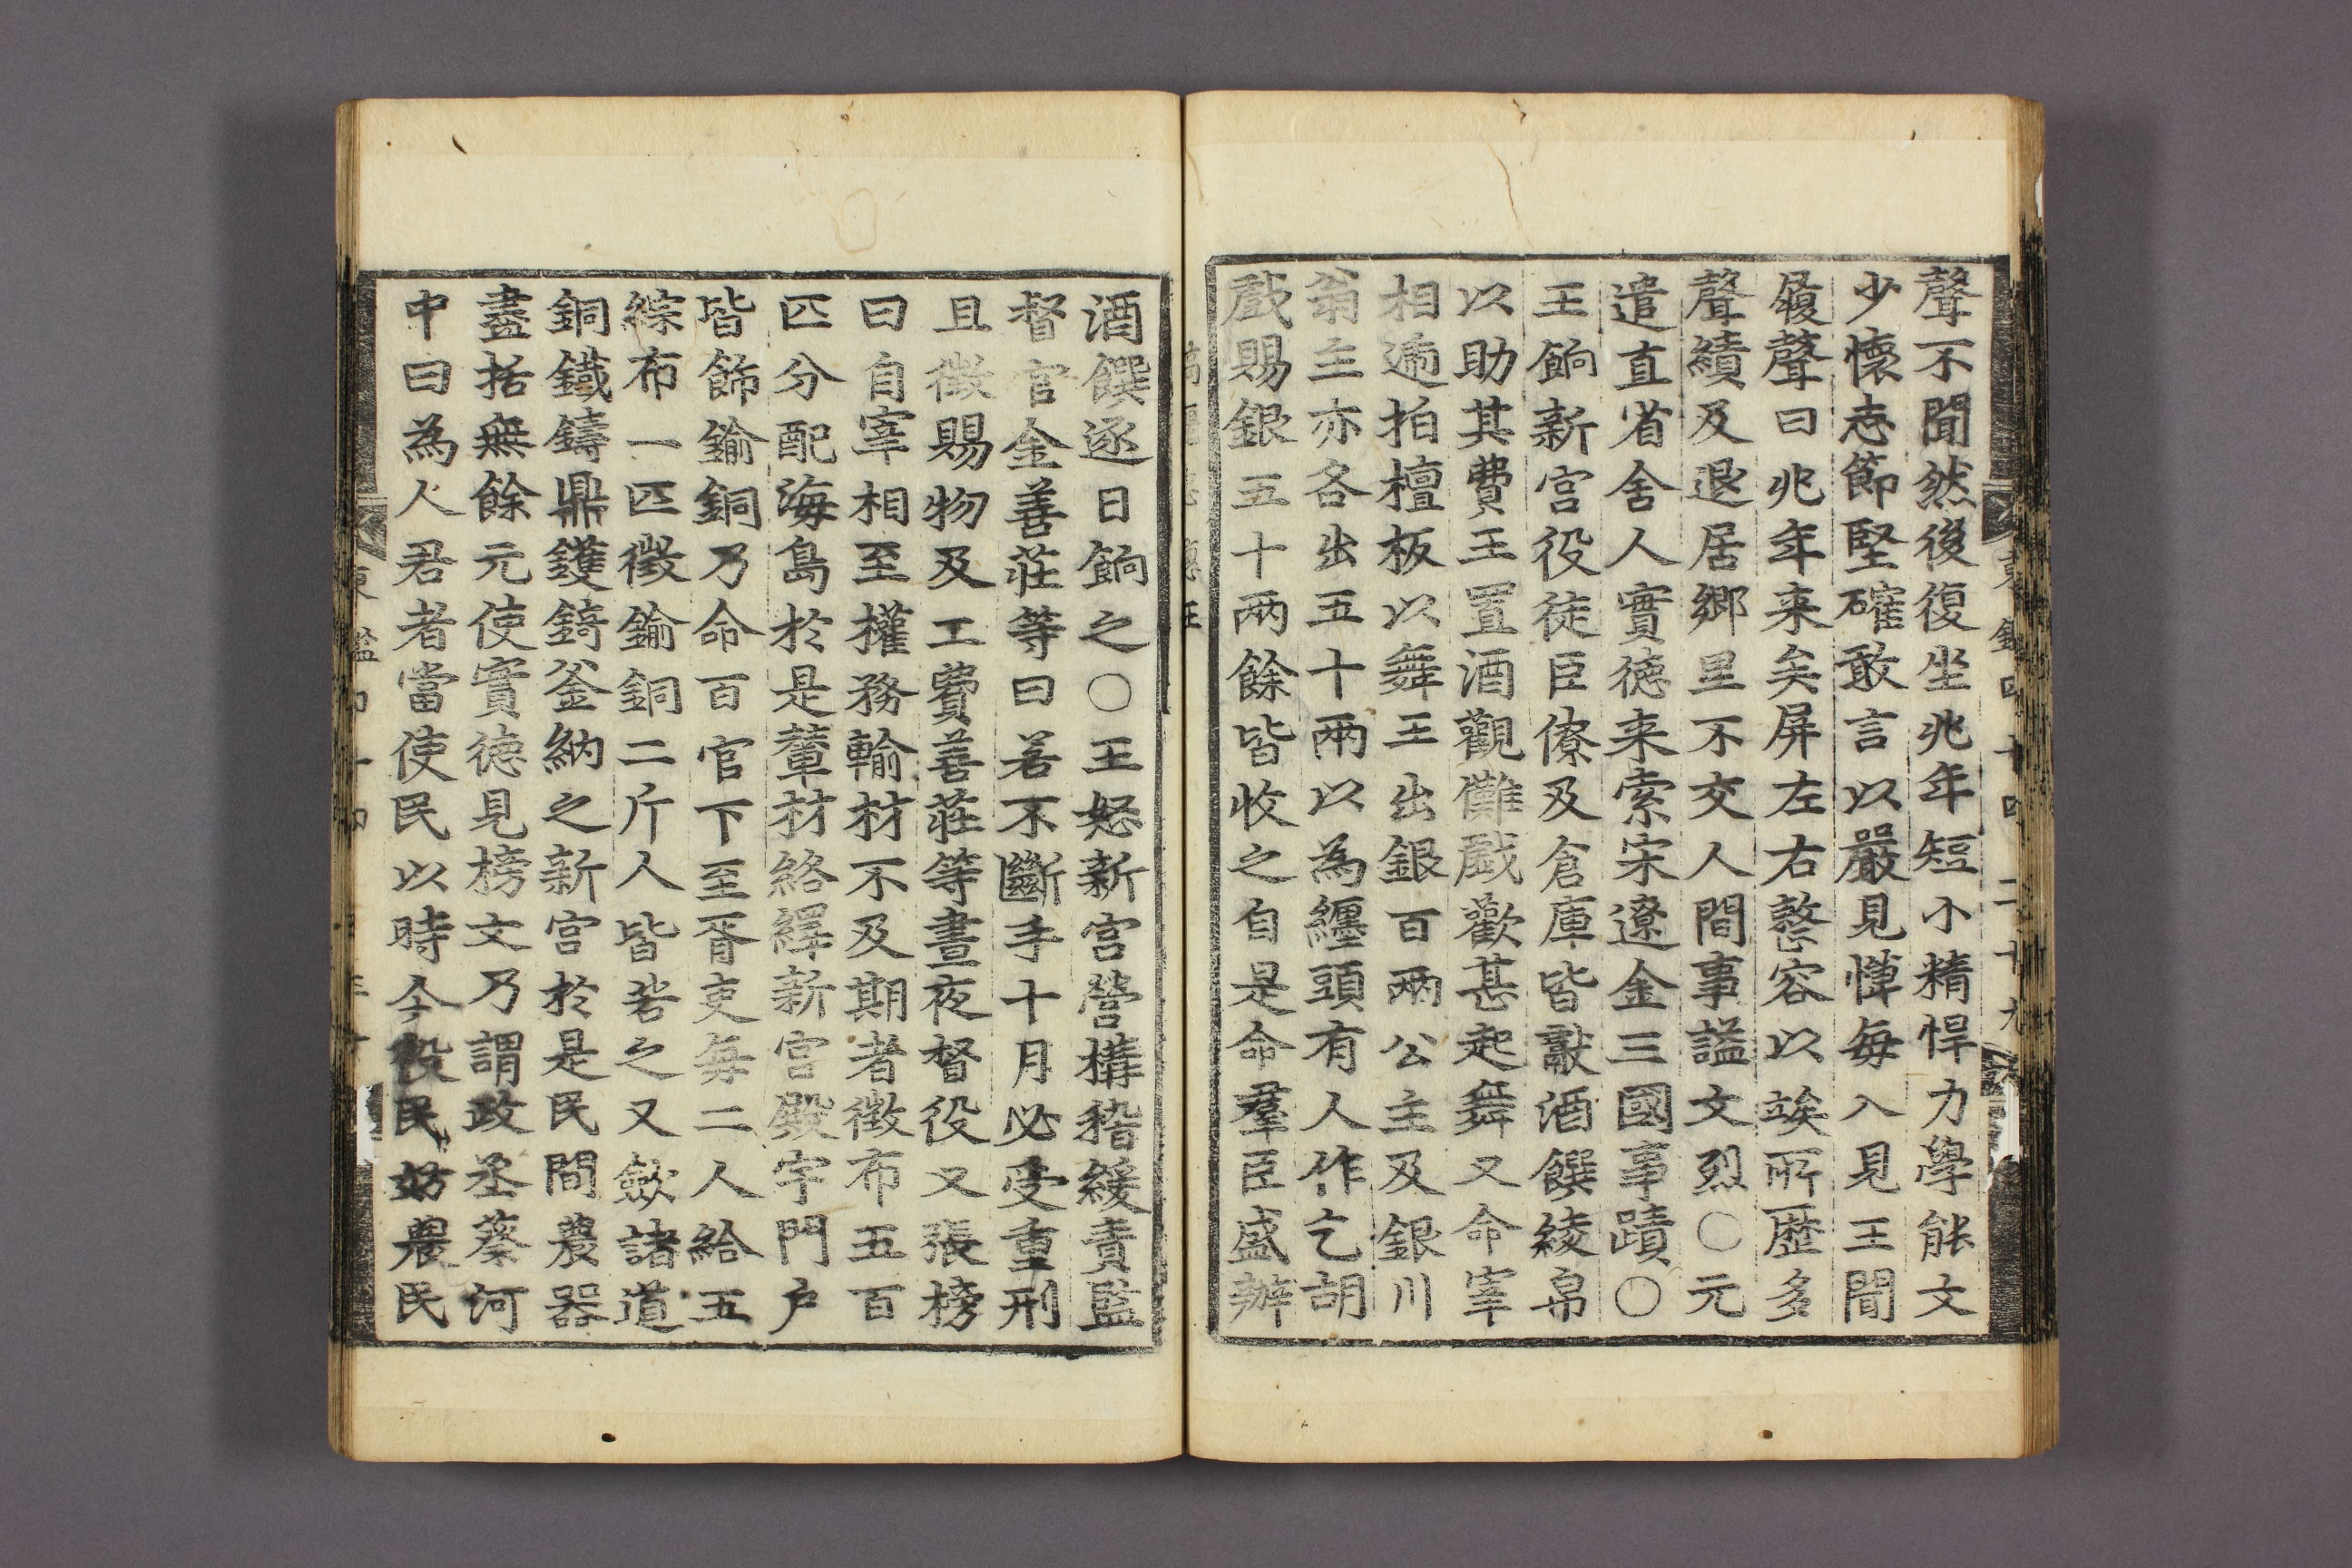 聲不聞然後復坐兆年短小精悍力學能文
少懷志節堅確敢言以嚴見憚每入見王聞
履聲曰兆年来矣屏左右整容以竢所歴多
聲績及退居鄉里不交人間事謚文烈○元
遣直省舍人實徳来索宋遼金三國事蹟○
王餉新宮役徒臣僚及倉庫皆獻酒饌綾帛
以助其費王置酒觀儺戱歡甚起舞又命宰
相遞拍檀板以舞王出銀百兩公主及銀川
翁主亦各出五十兩以為纏頭有人作乞胡
戱賜銀五十兩餘皆收之自是命羣臣盛辦
東鑑四十四 二十九
高麗忠惠王
酒饌逐日餉之○王怒新宮營構稽緩責監
督官金善莊等曰若不斷手十月必受重刑
且徵賜物及工費善莊等晝夜督役又張榜
曰自宰相至權務輸材不及期者徵布五百
匹分配海島於是輦材絡繹新宮殿宇門户
皆飾鍮銅乃命百官下至胥吏每二人給五
綜布一匹徵鍮銅二斤人皆苦之又歛諸道
銅鐵鑄鼎鑊錡釜納之新宮於是民間農器
盡括無餘元使實徳見榜文乃謂政丞蔡河
中曰為人君者當使民以時今役民妨農民
東鑑四十四 三十